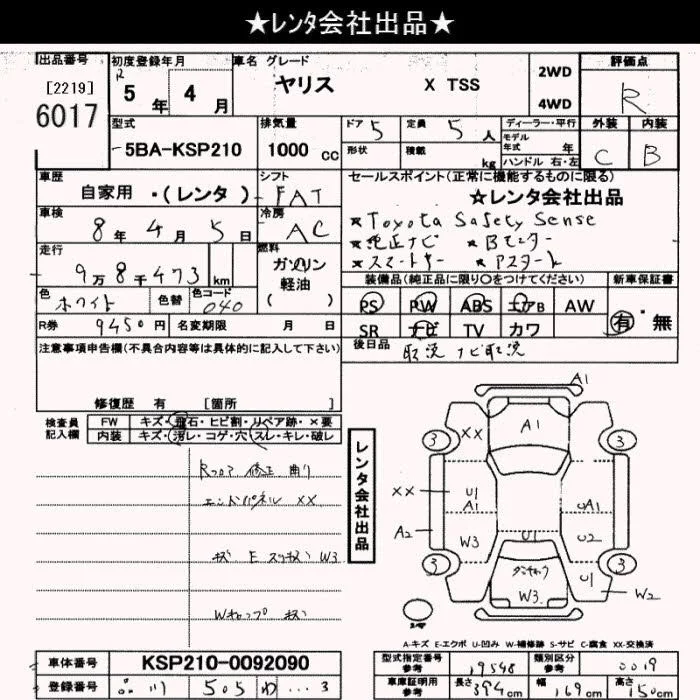 ★レンタ会社出品★
出品番号 初度登録年月 車名 グレード 評価点
[2219]
6017
R
5年 4月
ヤリス X TSS
2WD
4WD
R
型式 排気量 ドア 5 定員 5人 ディーラー・平行 外装 内装
-5BA-KSP210 1000cc
形状 積載 kg
モデル年式 年
ハンドル 右・左
C B
車歴 シフト セールスポイント(正常に機能するものに限る)
自家用・(レンタ) FAT
★レンタ会社出品
車検 8年 4月 5日 冷房 AC
★Toyota Safety Sense
★純正ナビ ★Bモニター
★スマートキー ★Pスタート
走行 9万8千473km
燃料 ガソリン
軽油
( )
装備品(純正品に限り○をつけてください) 新車保証書
色 ホワイト 色替 色コード 040
PS PW ABS エアB AW
有・無
R券 9450円 名変期限 月 日
SR ナビ TV カワ
後日品 取説 ナビ取説
注意事項申告欄(不具合内容等は具体的に記入して下さい)
修復歴 有 [箇所 ]
検査員
記入欄
FW キズ・飛石・ヒビ割・リペア跡・×要
内装 キズ・汚レ・コゲ・穴・スレ・キレ・破レ
Rフロア 修正 曲り
エンドパネル XX
キズ W3
キズ
レンタ会社出品
A1
A1
3
3
XX
XX
U1
A1
UA1
A2
W3
U1
U2
W3
U1
3
3
W2
A-キズ E-エクボ U-凹み W-補修跡 S-サビ C-腐食 XX-交換済
車体番号 KSP210-0092090
型式指定番号 参考 19548 類別区分 参考 0019
登録番号 品川 505 わ ... 3
車庫証明用 参考 長さ 394cm 幅 169cm 高さ 150cm